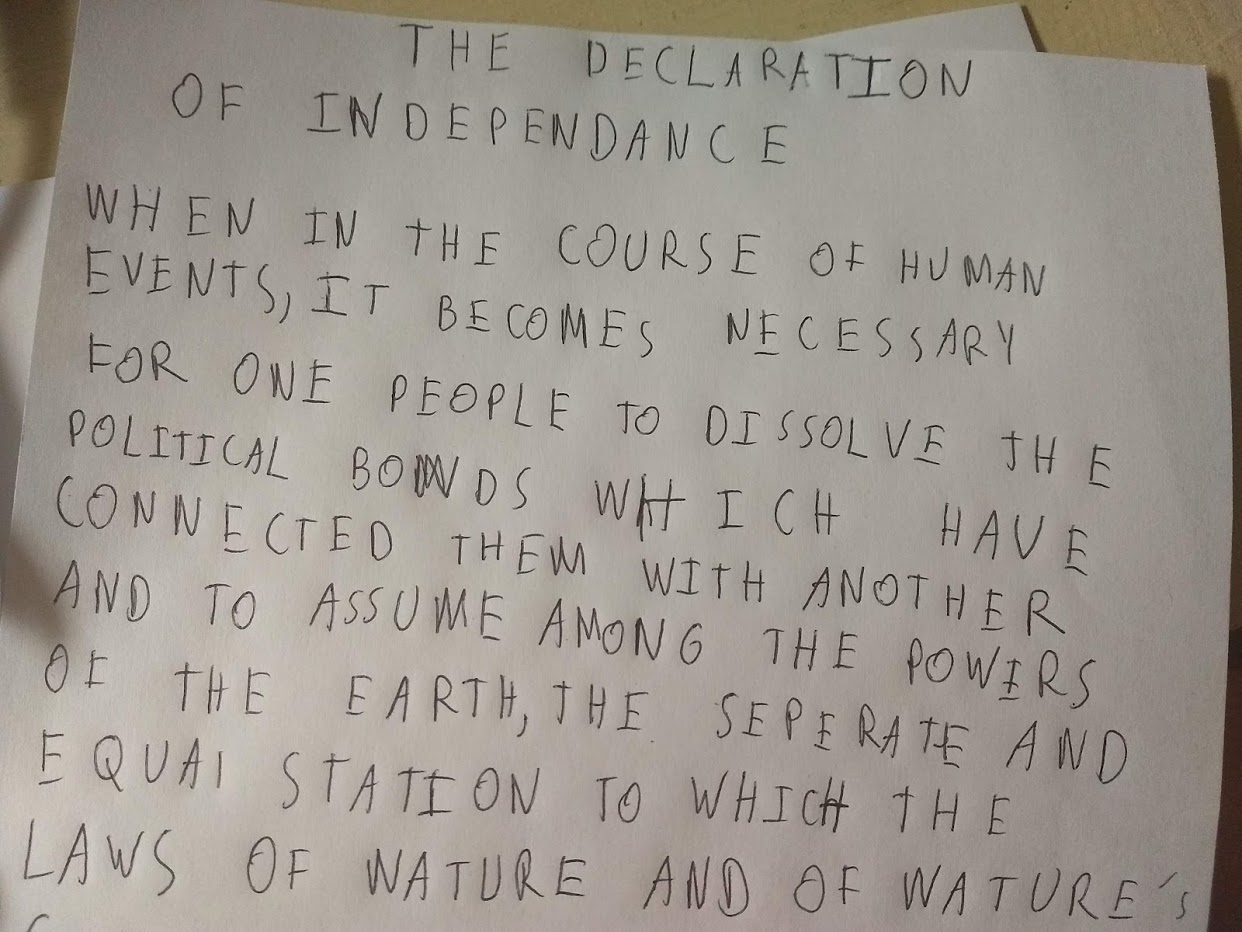 THE DECLARATION
OF INDEPENDANCE
WHEN IN THE COURSE OF HUMAN
EVENTS, IT BECOMES NECESSARY
FOR ONE PEOPLE TO DISSOLVE THE
POLITICAL BONDS WHICH HAVE
CONNECTED THEM WITH ANOTHER
AND TO ASSUME AMONG THE POWERS
OF THE EARTH, THE SEPERATE AND
EQUAL STATION TO WHICH THE
LAWS OF NATURE AND OF NATURE's